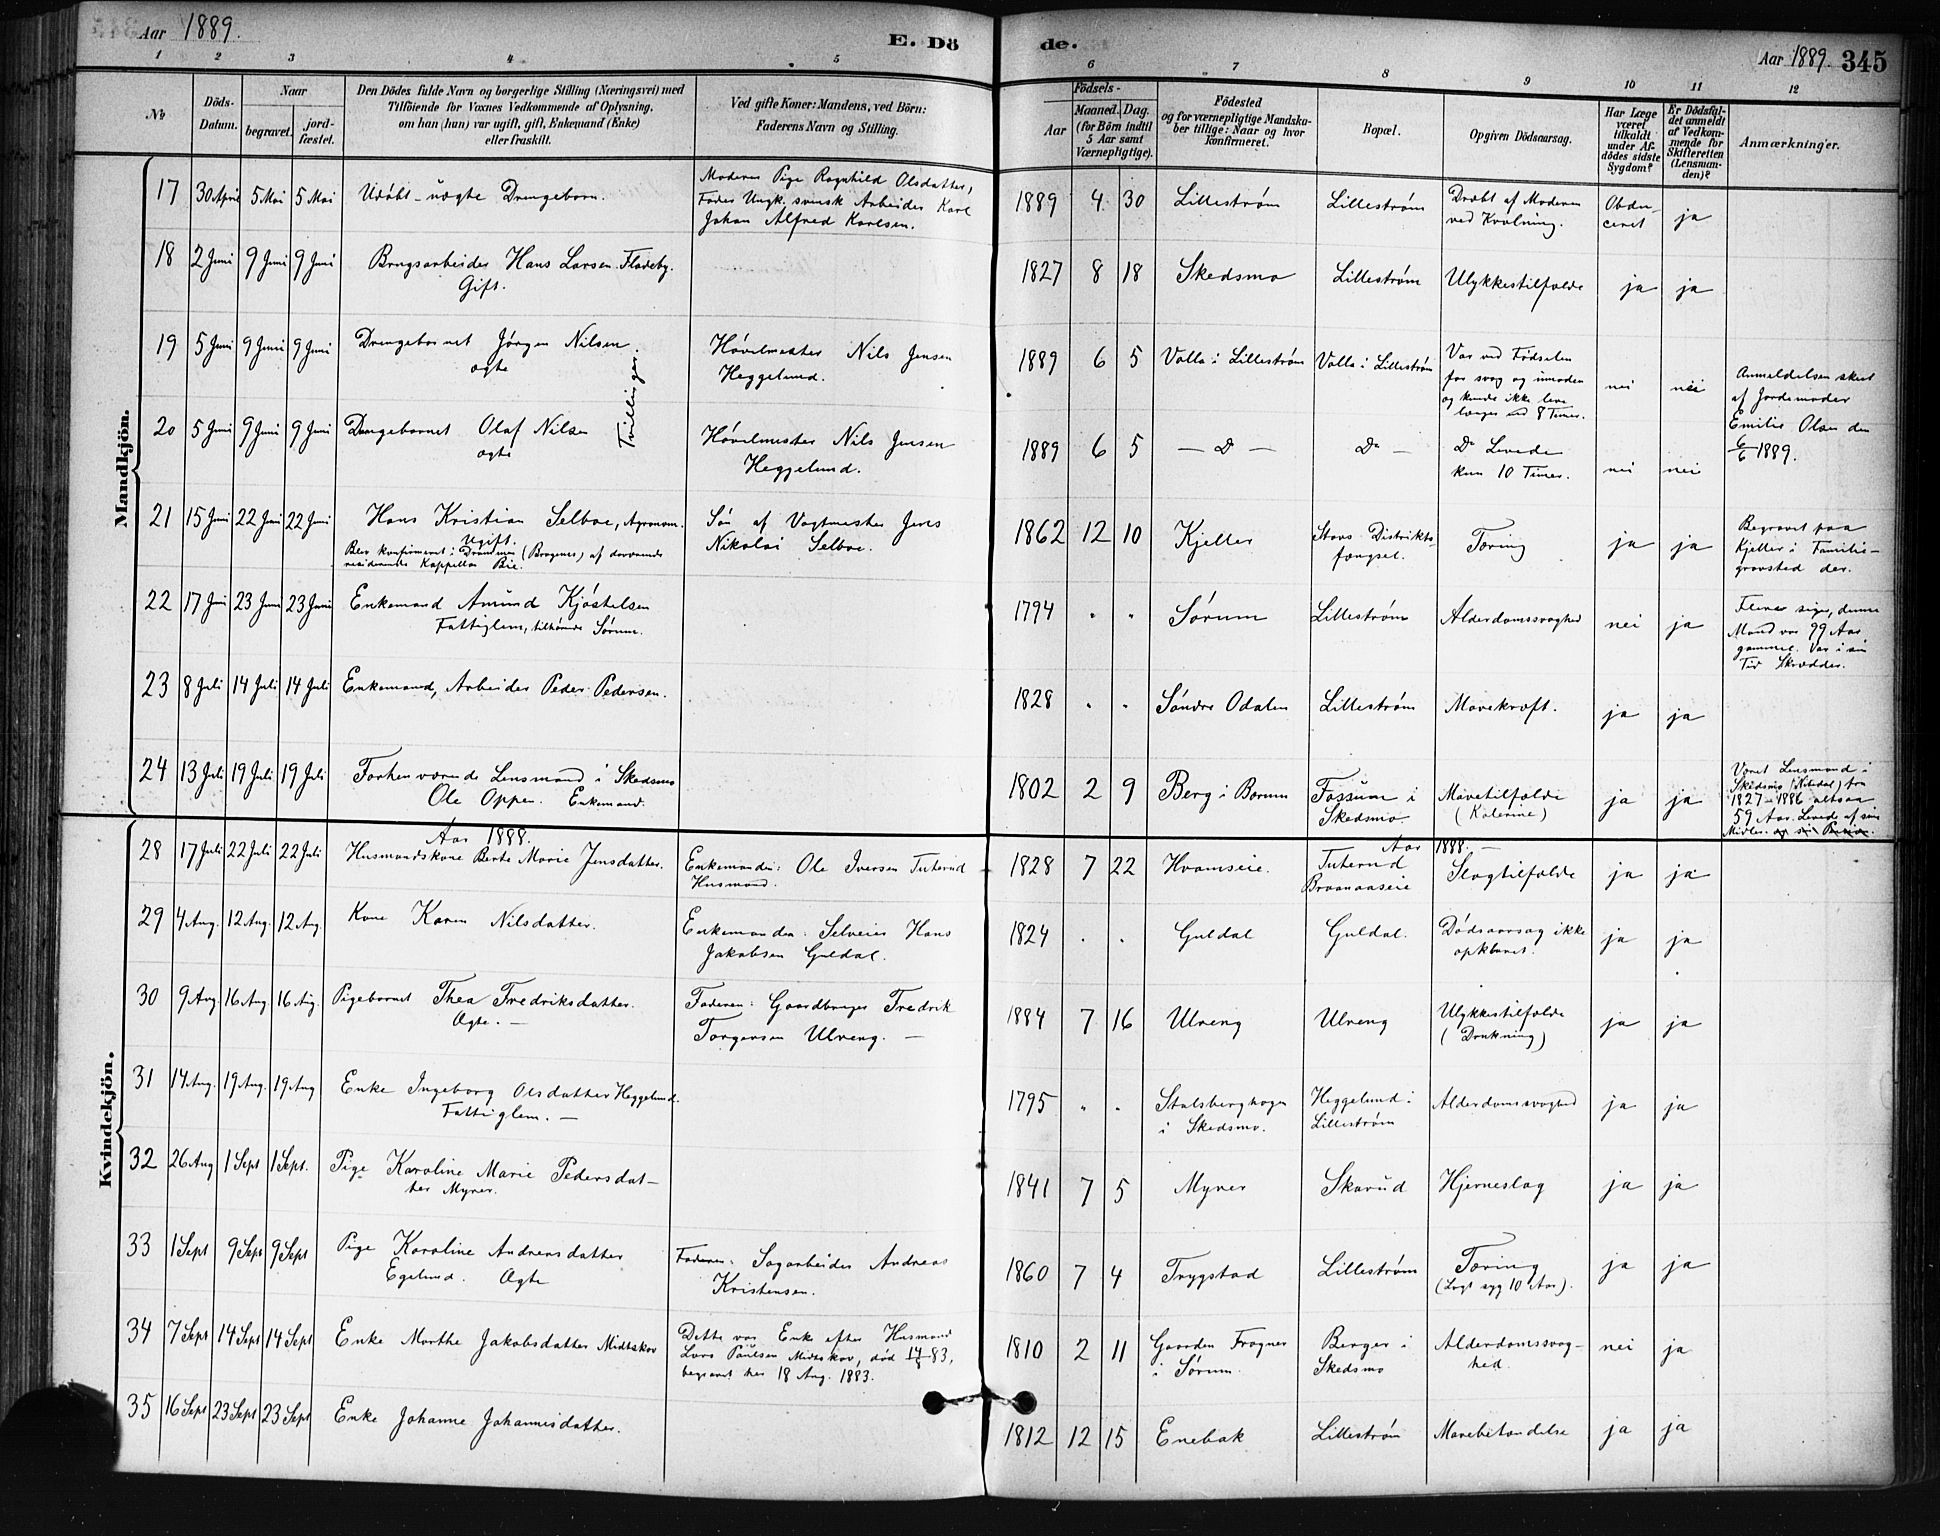 Aar 1889.
E. Dö
de.
Aar 1889. 345
1 2 3 4 5 6 7 8 9 10 11 12
No
Döds-
Datum.
Naar
begravet.
jord-
fæstet.
Den Dödes fulde Navn og borgerlige Stilling (Næringsvei) med
Tilföiende for Voxnes Vedkommende af Oplysning,
om han (hun) var ugift, gift, Enkemand (Enke)
eller fraskilt.
Ved gifte Koner: Mandens, ved Börn:
Faderens Navn og Stilling.
Födsels-
Aar
Maaned. Dag.
(for Börn indtil
5 Aar samt
Værnepligtige).
Födested
og for værnepligtige Mandska-
ber tillige: Naar og hvor
konfirmeret.
Bopæl.
Opgiven Dödsaarsag.
Har Læge
været
tilkaldt
under Af-
dödes sidste
Sygdom?
Er Dödsfal-
det anmeldt
af Vedkom-
mende for
Skifteretten
(Lensman-
den)?
Anmærkninger.
Mandkjön.
17 30 April 5 Mai 5 Mai Udøbt uægte Drengebarn.
Moderen Pige Ragnhild Olsdatter,
Fader Ungk. svensk Arbeider Karl
Johan Alfred Karlsen.
1889 4 30 Lillestrøm Lillestrøm
Dræbt af Moderen
ved Kvælning.
Obdu-
ceret
ja
18 2 Juni 9 Juni 9 Juni Brugsarbeider Hans Larsen Fladeby.
Gift.
1827 8 18 Skedsmo Lillestrøm Ulykkestilfælde ja ja
19 5 Juni 9 Juni 9 Juni Drengebarnet Jörgen Nilsen.
ægte
Tvillinger
Høvelmester Nils Jensen
Heggelund.
1889 6 5 Volla i Lillestrøm Volla i Lillestrøm
Var ved Fødselen
for svag og umoden
og kunde ikke leve
længer end 8 Timer.
nei nei
Anmeldelsen skeet
af Jordemoder
Emilie Olsen den
6/6 1889.
20 5 Juni 9 Juni 9 Juni Drengebarnet Olaf Nilsen
ægte
Høvelmester Nils Jensen
Heggelund.
1889 6 5 — Do — Do —
Do Levede
kun 10 Timer.
nei nei
21 15 Juni 22 Juni 22 Juni Hans Kristian Selboe, Agronom.
Ugift.
Blev konfirmeret i Drammen (Bragernes) af daværende
residerende Kappellan Bie.
Søn af Vagtmester Jens
Nikolai Selboe.
1862 12 10 Kjeller
Stavs Distrikts-
fængsel.
Tæring ja ja
Begravet paa
Kjeller i Familie-
gravsted der.
22 17 Juni 23 Juni 23 Juni Enkemand Amund Kjøstelsen
Fattiglem, tilhørende Sørum.
1794 " " Sørum Lillestrøm Alderdomssvaghed nei ja
Flere sige, denne
Mand var 99 Aar
gammel. Var i sin
Tid Skrædder.
23 8 Juli 14 Juli 14 Juli Enkemand, Arbeider Peder Pedersen.
1828 " " Søndre Odalen Lillestrøm Mavekræft. ja ja
24 13 Juli 19 Juli 19 Juli Forhenværende Lensmand i Skedsmo
Ole Oppen. Enkemand.
1802 2 9 Berg i Bærum
Fossum i
Skedsmo.
Mavetilfælde
(Kolerine)
ja ja
Været Lensmand i
Skedsmo (Nitedal) fra
1827-1886 altsaa
59 Aar. Levede af sine
Midler.
Kvindekjön.
Aar 1888.
28 17 Juli 22 Juli 22 Juli Husmandskone Berte Marie Jensdatter.
Enkemanden: Ole Iversen Tuterud
Husmand.
1828 7 22 Hvamseie.
Aar 1888. —
Tuterud
Braanaaseie
Slagtilfælde ja ja
29 4 Aug. 12 Aug. 12 Aug. Kone Karen Nilsdatter.
Enkemanden: Selveier Hans
Jakobsen Guldal.
1824 . . Guldal Guldal.
Dødsaarsag ikke
opklaret.
ja ja
30 9 Aug. 16 Aug 16 Aug. Pigebarnet Thea Fredriksdatter.
Ægte. —
Faderen: Gaardbruger Fredrik
Torgersen Ulreng. —
1884 7 16 Ulreng Ulreng
Ulykkestilfælde
(Drukning)
ja ja
31 14 Aug. 19 Aug. 19 Aug Enke Ingeborg Olsdatter Heggelund.
Fattiglem. —
1795 " "
Stalsberghagen
i Skedsmo.
Heggelund i
Lillestrøm
Alderdomssvaghed ja ja
32 26 Aug 1 Sept 1 Sept. Pige Karoline Marie Pedersdat-
ter Myrer.
1841 7 5 Myrer Skarud Hjerneslag ja ja
33 1 Sept 9 Sept 9 Sept Pige Karoline Andreasdatter
Egelund. Ægte
Faderen: Sagarbeider Andreas
Kristensen.
1860 7 4 Trygstad Lillestrøm
Tæring
(Lagt syg 10 Aar).
ja ja
34 7 Sept 14 Sept 14 Sept Enke Marthe Jakobsdatter Midtskov
Dette var Enke efter Husmand
Lars Paulsen Midtskov, død 83,
begravet her 18 Aug. 1883.
1810 2 11
Gaarden Frogner
i Sørum.
Berger i
Skedsmo
Alderdomssvag-
hed.
nei ja
35 16 Sept 23 Sept 23 Sept Enke Johanne Johannesdatter.
1812 12 15 Enebak Lillestrøm Mavebetændelse ja ja